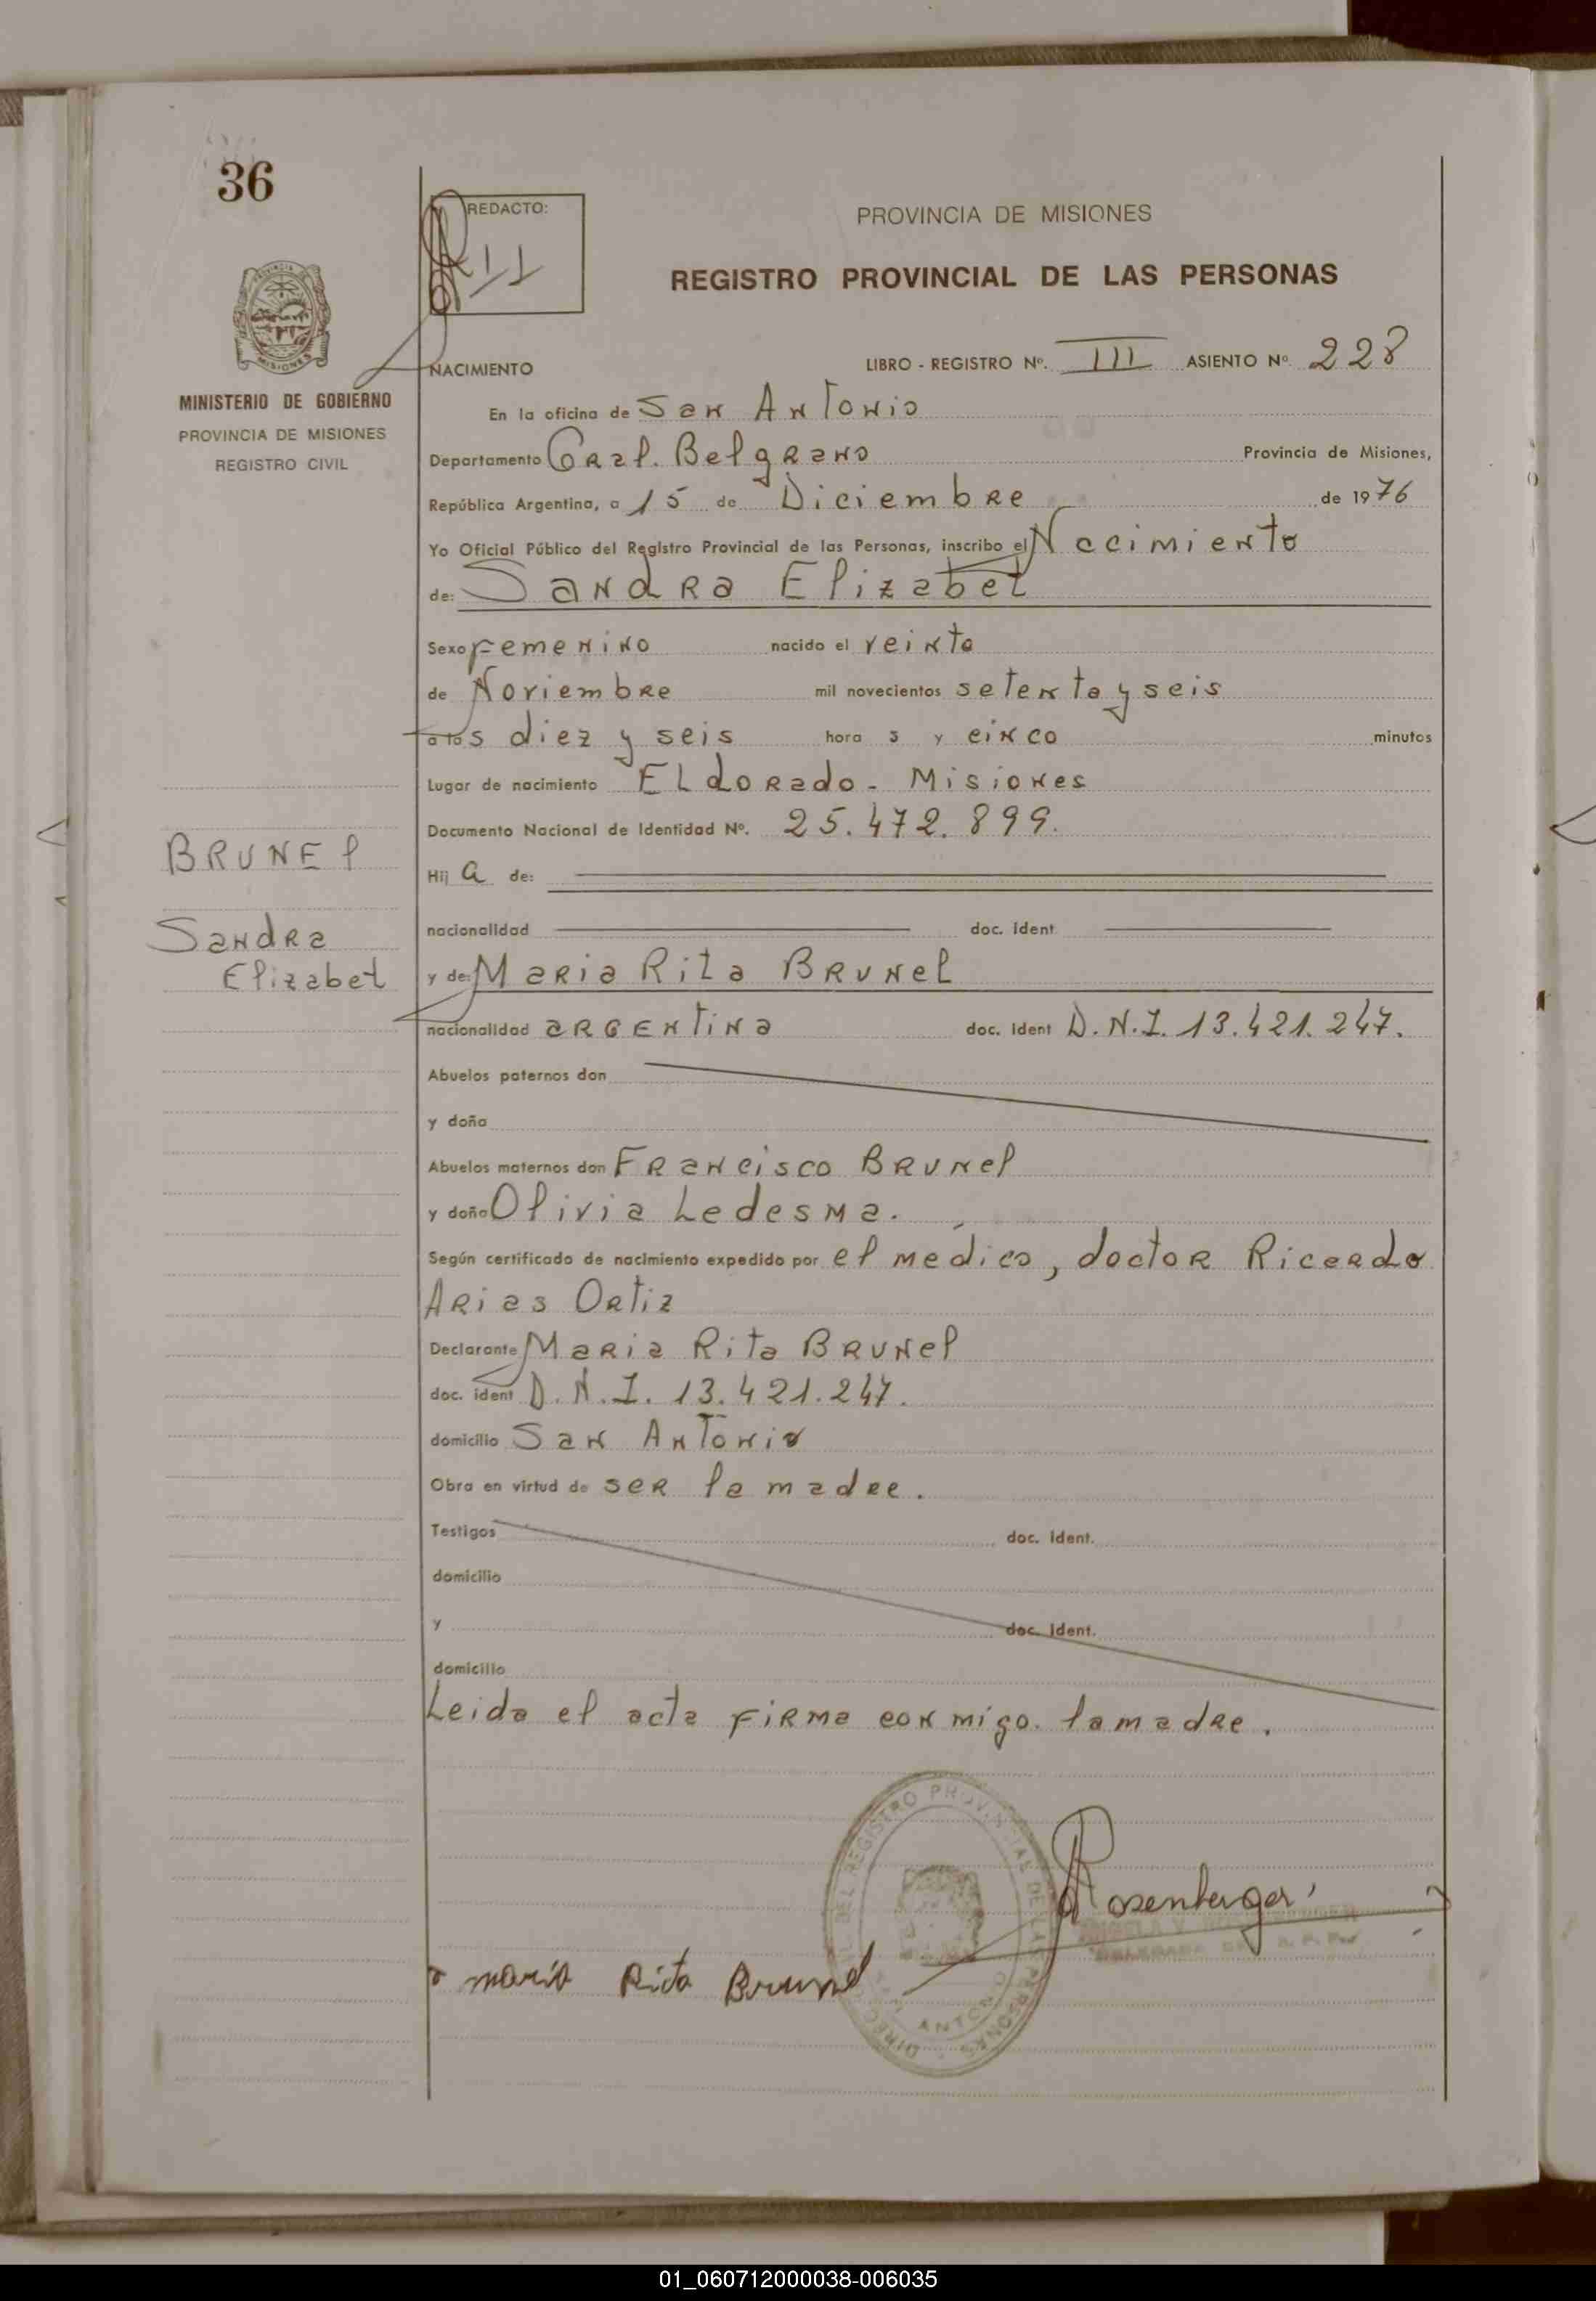 36
REDACTO:
11
PROVINCIA DE MISIONES
REGISTRO PROVINCIAL DE LAS PERSONAS
MISIONES
MINISTERIO DE GOBIERNO
PROVINCIA DE MISIONES
REGISTRO CIVIL
NACIMIENTO LIBRO - REGISTRO Nº. III ASIENTO Nº. 228
En la oficina de San Antonio
Departamento Gral. Belgrano Provincia de Misiones,
República Argentina, a 15 de Diciembre de 1976
Yo Oficial Público del Registro Provincial de las Personas, inscribo el Nacimiento
de: Sandra Elizabet
Sexo Femenino nacido el veinte
de Noviembre mil novecientos setenta y seis
a las diez y seis hora s y cinco minutos
Lugar de nacimiento ELdorado - Misiones
Documento Nacional de Identidad Nº. 25.472.899.
Hij a de:
nacionalidad doc. ident
y de: Maria Rita Brunel
nacionalidad argentina doc. ident D.N.I. 13.421.247.
Abuelos paternos don
y doña
Abuelos maternos don Francisco Brunel
y doña Olivia Ledesma.
Según certificado de nacimiento expedido por el médico, doctor Ricardo
Arias Ortiz
Declarante Maria Rita Brunel
doc. ident D.N.I. 13.421.247.
domicilio San Antonio
Obra en virtud de ser la madre.
Testigos doc. ident.
domicilio
y doc. ident.
domicilio
Leida el acta firma conmigo la madre.
BRUNEl
Sandra
Elizabet
Rosenberger
maria Rita Brunel
01_060712000038-006035